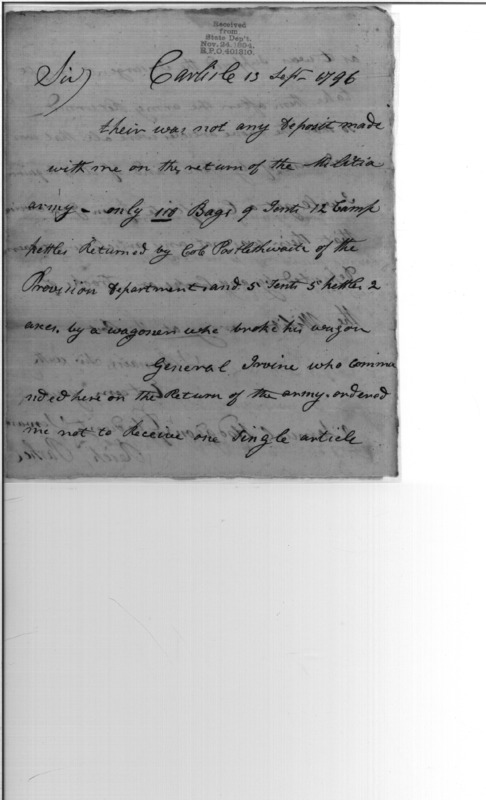 Received
from
State Dep't.
Nov. 24, 1894.
R.P.O. 401310.
Sir) Carlisle 13 Sept 1796
their was not any Deposit made
with me on the return of the Militia
army - only 110 Bags 9 Tents 12 Camp
kettles Returned by Col Postlethwaite of the
Provision Department and 5 Tents 5 kettles 2
axes. by a wagoner who broke his wagon
General Irvine who comma
nded here on the Return of the army. ordered
me not to Receive one Single article